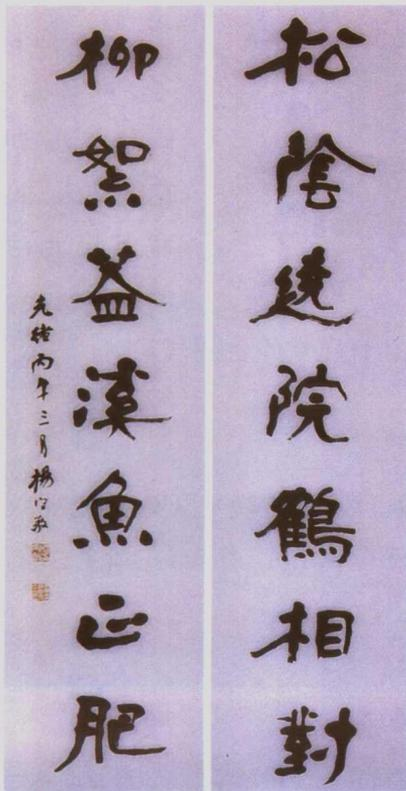 松陰繞院鶴相對
柳絮蓋溪魚正肥
光緒丙午三月楊守敬